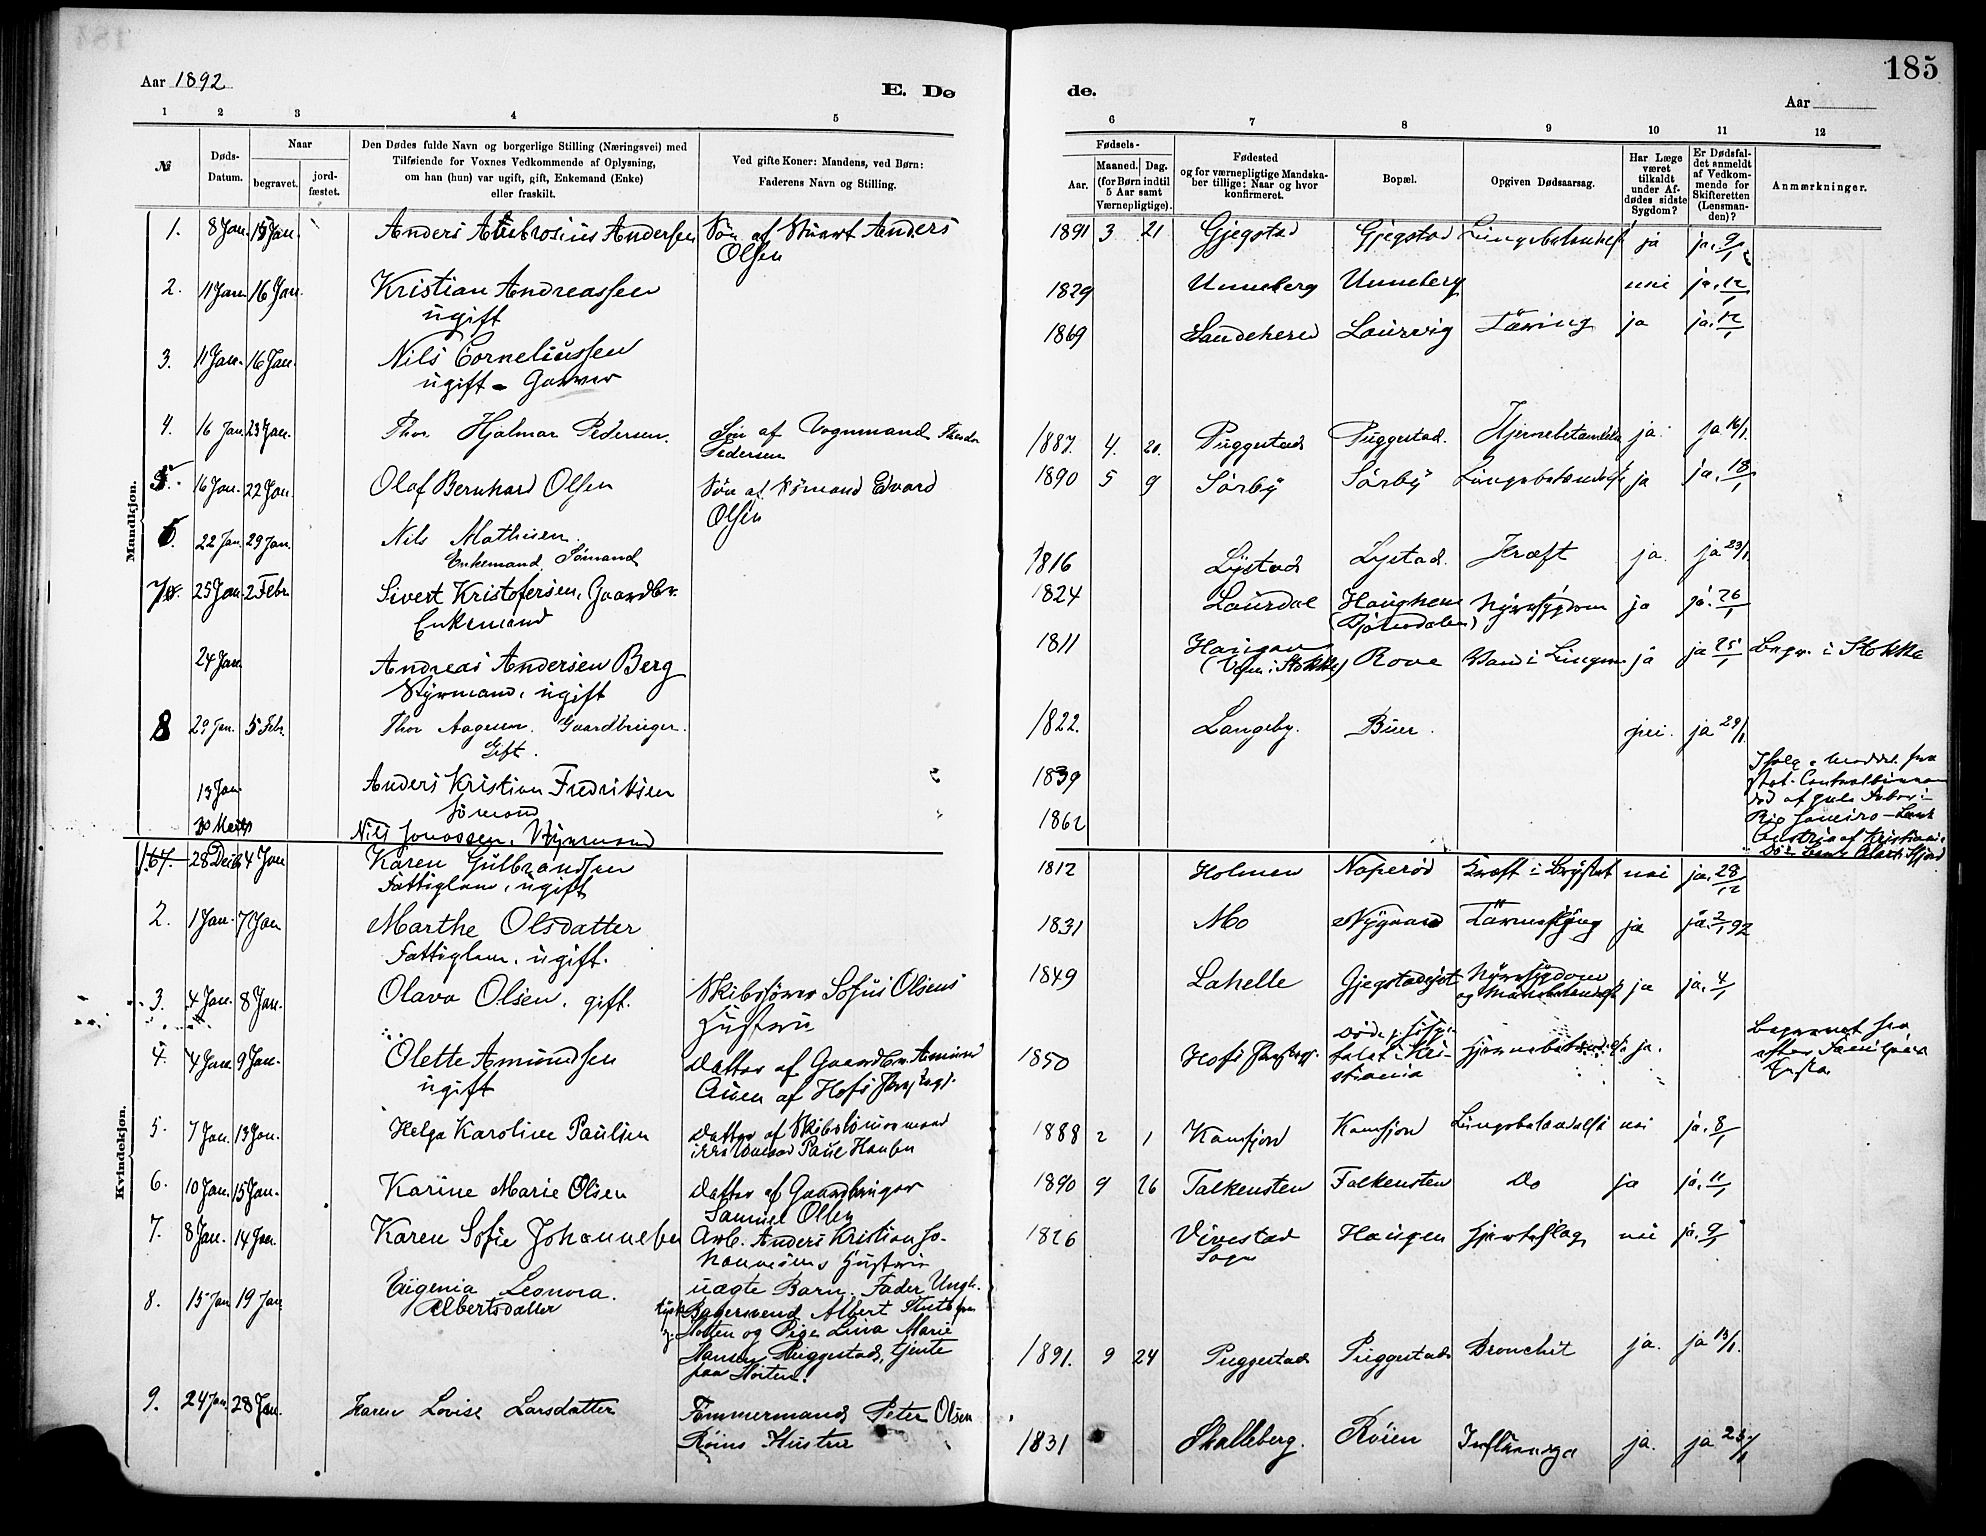 Aar 1892
E. Dø
de.
185
Aar
1 2 3 4 5
6 7 8 9 10 11 12
№
Døds-Datum.
Naar
begravet.
jordfæstet.
Den Dødes fulde Navn og borgerlige Stilling (Næringsvei) med
Tilføiende for Voxnes Vedkommende af Oplysning,
om han (hun) var ugift, gift, Enkemand (Enke)
eller fraskilt.
Ved gifte Koner: Mandens, ved Børn:
Faderens Navn og Stilling.
Fødsels-
Aar. Maaned. Dag.
(for Børn indtil
5 Aar samt
Værnepligtige).
Fødested
og for værnepligtige Mandska-
ber tillige: Naar og hvor
konfirmeret.
Bopæl.
Opgiven Dødsaarsag.
Har Læge
været
tilkaldt
under Af-
dødes sidste
Sygdom?
Er Dødsfal-
det anmeldt
af Vedkom-
mende for
Skifteretten
(Lensman-
den)?
Anmærkninger.
Mandkjøn.
1. 8 Jan. 15 Jan. Anders Ambrosius Andersen Søn af Stuert Anders 1891 3 21 Gjegstad Gjegstad Lungebetændelse ja ja. 9/1
Olsen
2. 11 Jan. 16 Jan. Kristian Andreassen 1829 Unneberg Unneberg nei ja. 12/1
ugift
3. 11 Jan. 16 Jan. Nils Corneliussen 1869 Sandeherred Laurvig Tæring ja ja. 12/1
ugift - Garver
4. 16 Jan. 23 Jan. Thor Hjalmar Pedersen. Søn af Vognmand Theodor 1887. 4. 20. Puggestad Puggestad. Hjernebetændelse ja. ja 16/1.
Pedersen
5. 16 Jan. 22 Jan. Olaf Bernhard Olsen Søn af Sømand Edvard 1890 5 9 Sørby Sørby Lungebetændelse ja ja. 18/1
Olsen
6. 22 Jan. 29 Jan. Nils Mathisen. 1816 Lystad Lystad. Kræft ja. ja 23/1
Enkemand, Sømand
7. 25 Jan. 2 Febr. Sivert Kristofersen, Gaardbr. 1824 Laurdal Haughem Nyresygdom ja ja. 26/1
Enkemand
24 Jan. Andreas Andersen Berg 1811 Haugan Rove Vand i Lungen ja ja 25/1 Begr. i Stokke
(Vajn i Stokke)
Styrmand, ugift
8 29 Jan. 5 Febr. Thor Aagesen. Gaardbruger. 1822. Langeby. Buer. nei. ja 29/1.
Gift.
13 Jan. Anders Kristian Fredriksen 1839
Sømand
30 Marts Nils Jonassen, Styrmand 1862
Rio Janeiro
Kvindekjøn.
1. 67. 28 Decb. 4 Jan Karen Gulbrandsen 1812 Holmen Naperød Kræft i Brystet nei ja. 28/12
Fattiglem, ugift
2. 1 Jan. 7 Jan Marthe Olsdatter 1831 Mo Nygaard ja ja. 2/1 92
Fattiglem. ugift.
3. 4 Jan. 8 Jan. Olava Olsen. gift. Skibsfører Sofus Olsens 1849 Lahelle Gjegstadejet Nyresygdom ja ja. 4/1
Hustru
4. 4 Jan. 9 Jan. Olette Amundsen Datter af Gaardbr. Amund 1850 Hofs Prestegj. Hjernebetændelse ja. Begravet fra
ugift Auen af Hofs Prestegj.
5. 7 Jan. 13 Jan. Helga Karoline Paulsen Datter af Skibstømmermand 1888 2 1 Kamfjord Kamfjord Lungebetændelse nei ja. 8/1
Paul Hansen
6. 10 Jan. 15 Jan. Karine Marie Olsen Datter af Gaardbruger 1890 9 26 Falkensten Falkensten Do ja ja. 11/1
Samuel Olsen
7. 8 Jan. 14 Jan. Karen Sofie Johannesen Arb. Anders Kristian Jo- 1826 Vivestad Haugen Hjerteslag nei ja. 9/1
hannesens Hustru Sogn
8. 15 Jan 19 Jan Eugenia Leonora. uægte Barn, Fader Ungk.
Albertsdatter Bagersvend Albert
og Pige Lina Marie 1891. 9 24 Puggestad Puggestad Bronchit ja. ja 15/1.
Hansen Puggestad, tjente
paa Horten.
9. 24 Jan. 28 Jan. Karen Lovise Larsdatter Tømmermand Peter Olsen 1831 Skalleberg. Røien Influenza ja. ja 25/1
Røins Hustru